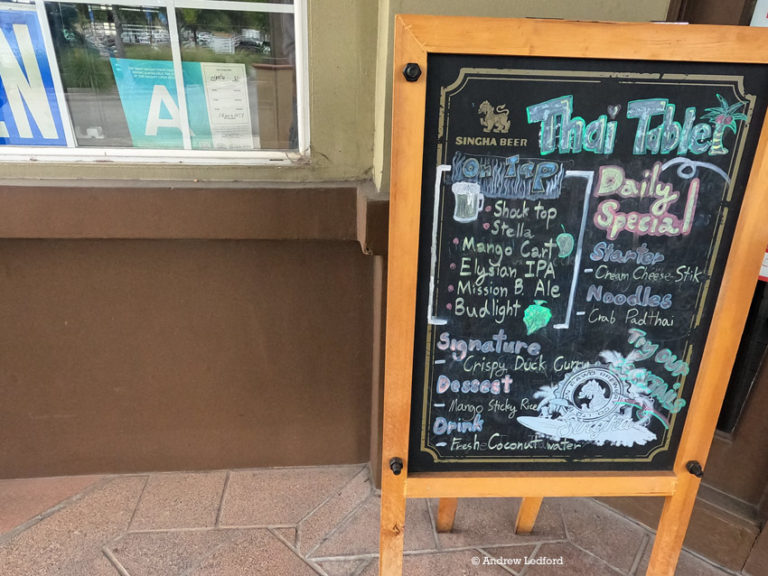 EN
A
SINGHA BEER
Thai Table
On Tap
Shock top
Stella
Mango Cart
Elysian IPA
Mission B. Ale
Budlight
Daily
Special
Startor
- Cream Cheese Stik
Noodles
- Crab Padthai
Signature
- Crispy Duck Curry
Dessest
- Mango Sticky Rice
Drink
- Fresh Coconut water
Try our
© Andrew Ledford